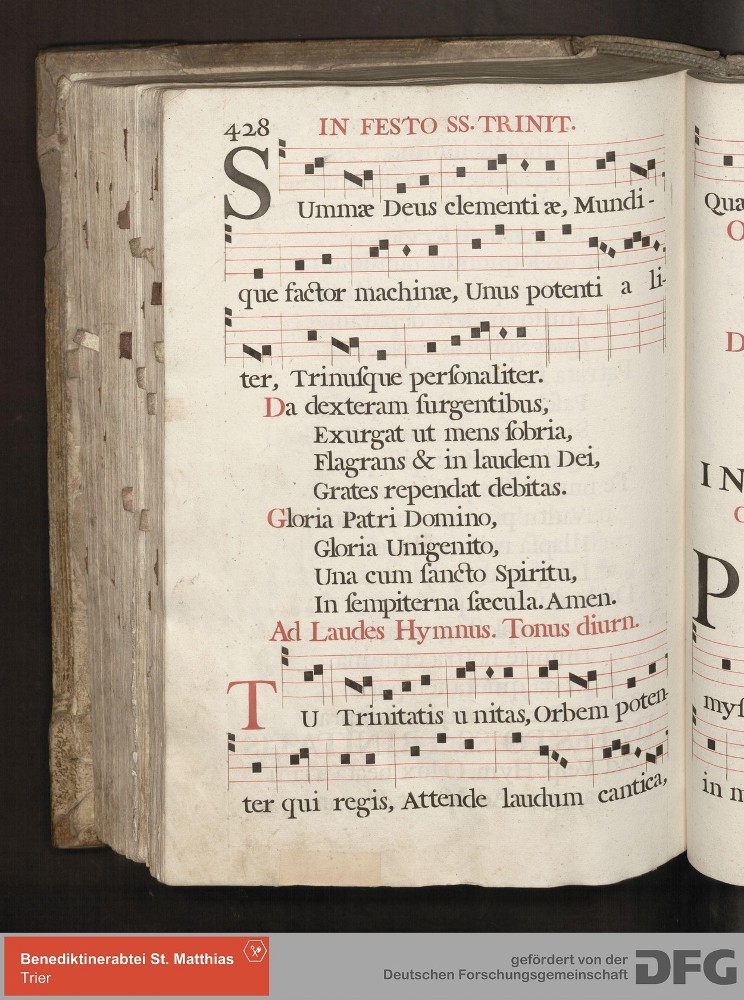 428 IN FESTO SS. TRINIT.
SUmmæ Deus clementi æ, Mundi-
que factor machinæ, Unus potenti a li-
ter, Trinuſque perſonaliter.
Da dexteram ſurgentibus,
Exurgat ut mens ſobria,
Flagrans & in laudem Dei,
Grates rependat debitas.
Gloria Patri Domino,
Gloria Unigenito,
Una cum ſancto Spiritu,
In ſempiterna ſæcula. Amen.
Ad Laudes Hymnus. Tonus diurn.
TU Trinitatis u nitas, Orbem poten-
ter qui regis, Attende laudum cantica,
Qua
O
D
IN
P
myſ
in m
Benediktinerabtei St. Matthias
Trier
gefördert von der
Deutschen Forschungsgemeinschaft
DFG